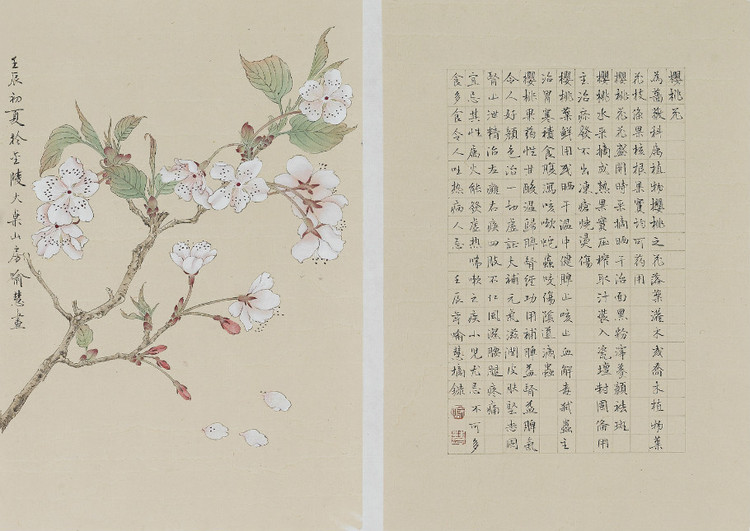 壬辰初夏於金陵大山房喻慧畫
櫻桃花
為薔薇科屬植物櫻桃之花落葉灌木或喬木植物葉
花枝條果核根果實均可葯用
櫻桃花花盛開時采摘晒干治面黑粉滓養顏祛斑
櫻桃水采摘成熟果實压榨取汁裝入瓷壇封固備用
主治疹發不出凍瘡燒燙傷
櫻桃葉鮮用或晒干溫中健脾止咳止血解毒弒蟲主
治胃寒積食腹瀉咳嗽蛇蟲咬傷陰道滴蟲
櫻桃果葯性甘酸溫歸脾腎經功用補脾益腎益脾氣
令人好顏色治一切虛証大補元氣滋潤皮肤堅志固
腎止泄精治左癱右痪四肢不仁風濕腰腿疼痛
宜忌其性属火能發虛熱喘嗽之疾小兒尤忌不可多
食多食令人吐熱病人忌 壬辰喻慧摘錄